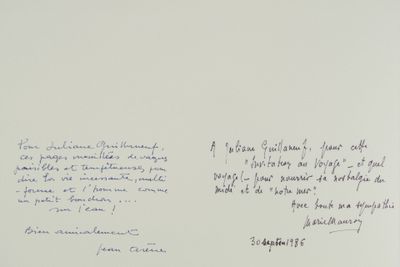 Pour Juliane Guillaneuf,
ces pages mouillées de vagues
paisibles et tempétueuses, pour
dire la vie incessante, multi
-forme et l'homme comme
un petit bouchon ....
sur l'eau !
Bien amicalement
Jean Arène
A Juliane Guillaneuf, pour cette
"Invitation au Voyage" - et quel
voyage ! - pour nourrir sa nostalgie du
midi et de "notre mer".
Avec toute ma sympathie
Marie Mauron
30 1986